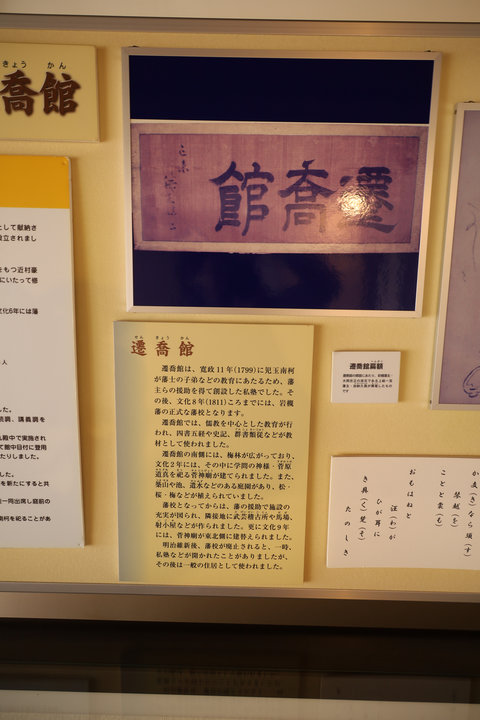 きょう かん
喬館
として献納さ
設立されまし
をもつ近村豪
にいたって修
文化6年には藩
人
した。
読調、講義調を
丸殿中で実施され
て館中目付に登用
たりしました。
した。
を新たにすると共
生一同出席し最前の
南柯を祀ることがあ
遷喬館
せん きょう かん
遷喬館
遷喬館は、寛政11年(1799)に児玉南柯
が藩士の子弟などの教育にあたるため、藩
主らの援助を得て創設した私塾でした。そ
の後、文化8年(1811)ころまでには、岩槻
藩の正式な藩校となります。
遷喬館では、儒教を中心とした教育が行
われ、四書五経や史記、群書類従などが教
材として使われました。
遷喬館の南側には、梅林が広がっており、
文化2年には、その中に学問の神様・菅原
道真を祀る菅神廟が建てられました。また、
築山や池、遣水などのある庭園があり、松・
桜・梅などが植えられていました。
藩校となってからは、藩の援助で施設の
充実が図られ、隣接地に武芸稽古所や馬場、
射小屋などが作られました。更に文化9年
には、菅神廟が東北側に建替えられました。
明治維新後、藩校が廃止されると、一時、
私塾などが開かれたことがありましたが、
その後は一般の住居として使われました。
遷喬館扁額
か麦(き)なら須(す)
琴越(を)
ことと雲(も)
おもはねと
遅(わ)が
ひが耳に
き具(く)楚(そ)
たのしき